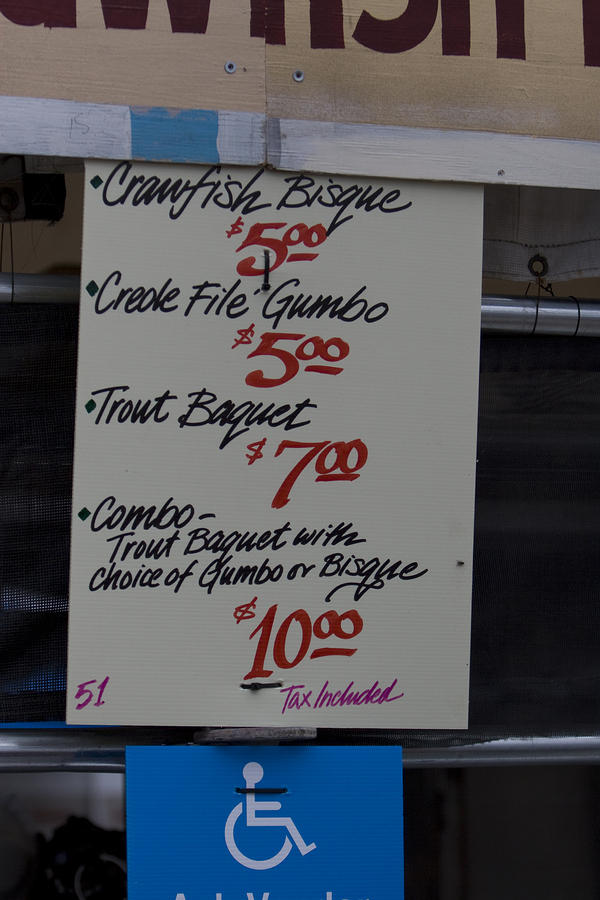 • Crawfish Bisque
$5.00
• Creole File' Gumbo
$5.00
• Trout Baquet
$7.00
• Combo-
Trout Baquet with
choice of Gumbo or Bisque
$10.00
51 Tax Included